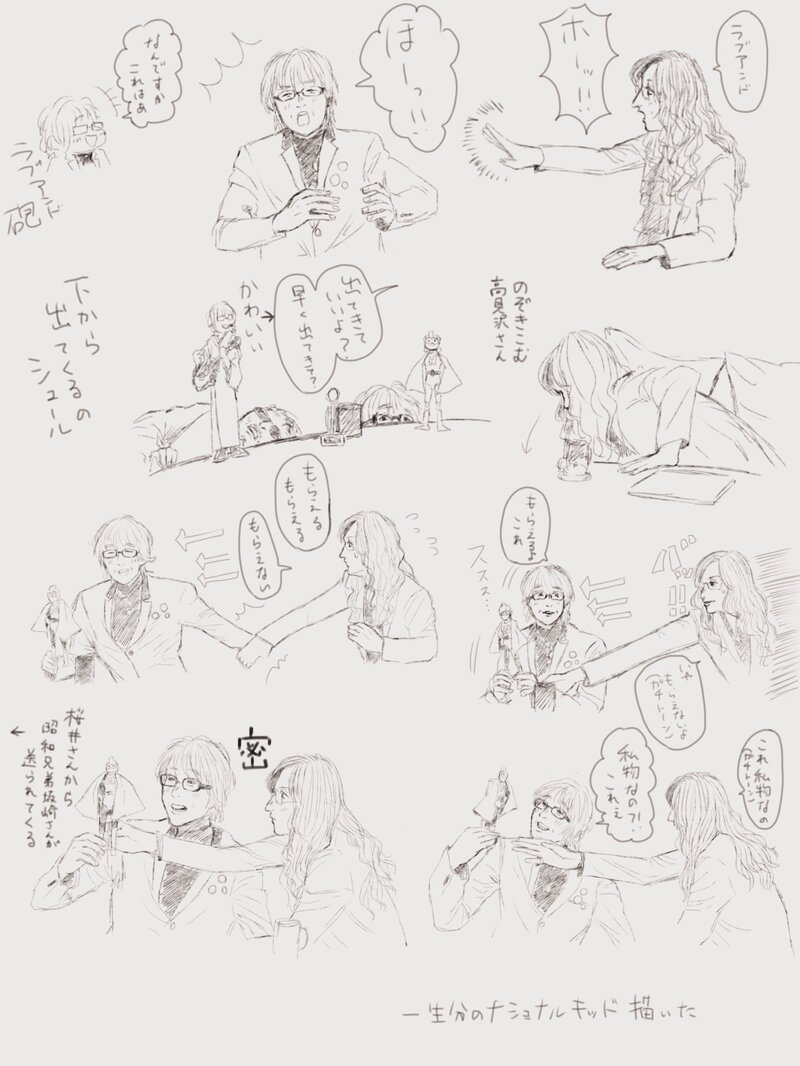 ラブアンド
ホーッ!!
ほーっ…
なんですか
これはぁ
ラブアンド
砲
のぞきこむ
高見沢さん
出てきて
いいよ?
早く出てきて?
かわいい
下から
出てくるの
シュール
もらえるよ
これ
ススス…
グッ!!
いや
もらえないよ
(ガチトーン)
もらえる
もらえる
もらえない
これ私物なの
(ガチトーン)
私物なの?!
これぇ
密
桜井さんから
昭和兄弟坂崎さんが
送られてくる
一生分のナショナルキッド描いた